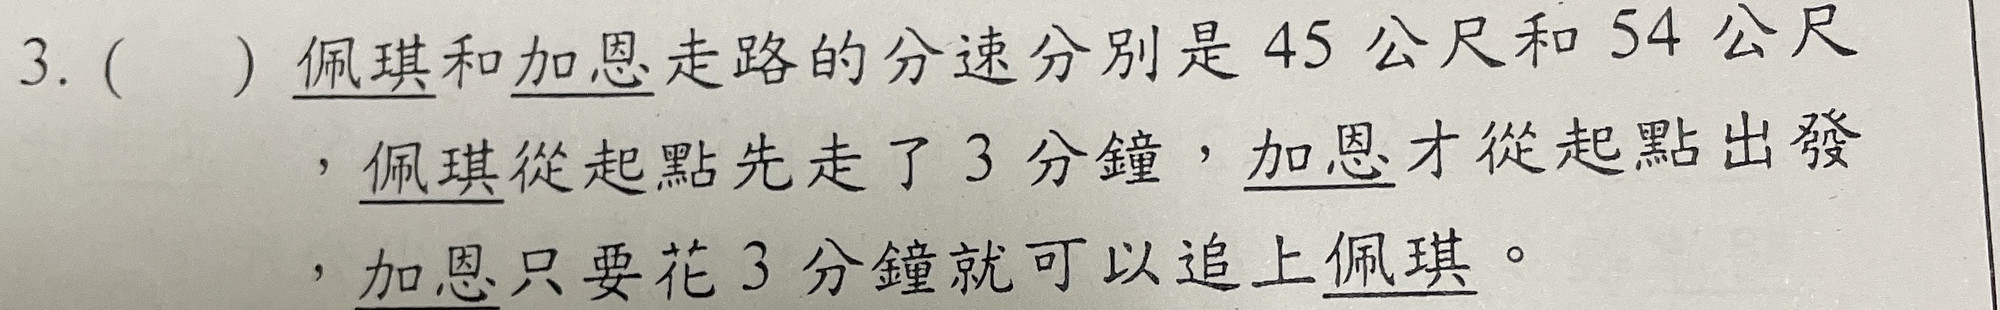 3. (　　) 佩琪和加恩走路的分速分別是 45 公尺和 54 公尺
，佩琪從起點先走了 3 分鐘，加恩才從起點出發
，加恩只要花 3 分鐘就可以追上佩琪。